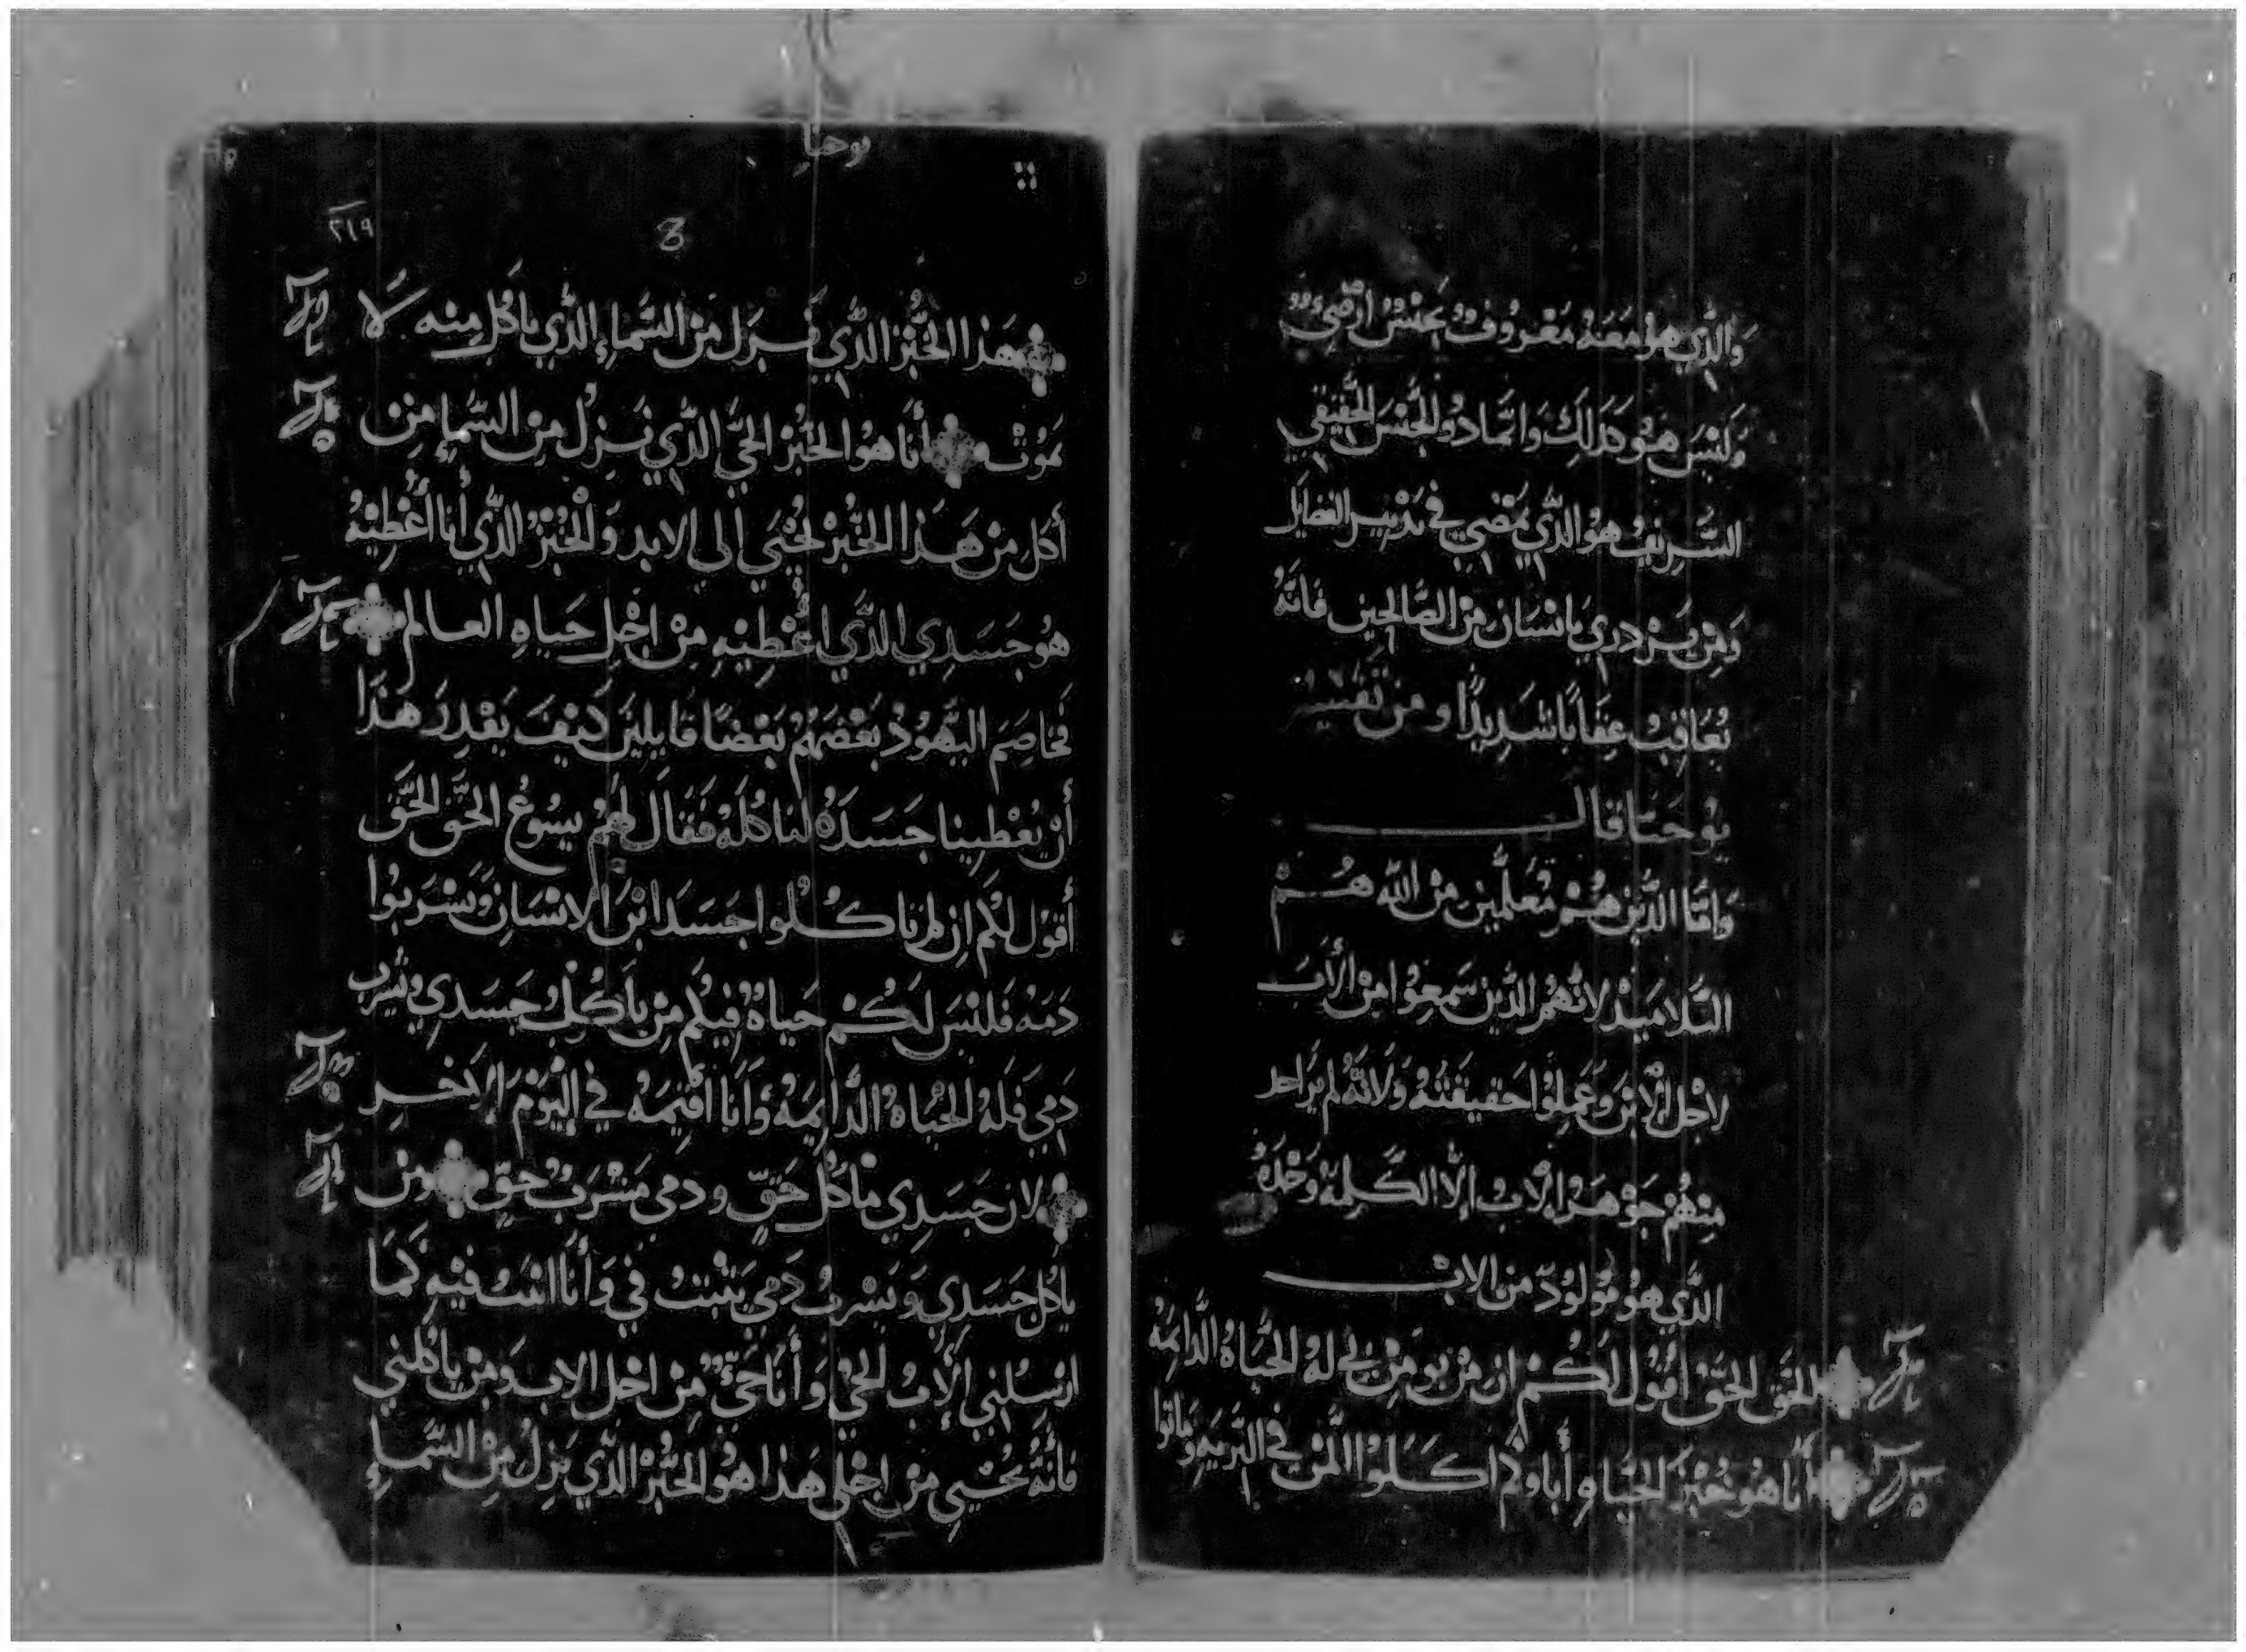 وَالَّذِي هُوَ مَعَهُ مَعْرُوفٌ بِجِنْسٍ أَرْضِيٍّ
وَلَيْسَ هُوَ كَذَلِكَ وَانَّمَا ذُو الجِّنْسِ الحَّقِيقِي
الشَّرِيفِ هُوَ الَّذِي يَمْضِي فِي تَدْبِيرِ الفضايل
وَمَنْ يَزْدري بِانسَان مِنْ الصَّالحِين فَانَّهُ
يُعَاقَبُ عِقَاباً شَدِيدًا ومن تفسير
يُوحَنَّا قال
وَامَّا الَّذِينَ هُمْ مُعَلَّمِين مِنْ الله هُمْ
التَّلامِيذ لانَّهُم الَّذِين سَمِعُوا مِن الأَبَ
لاجْل الإبْن وَعَمِلُوا حَقيقَتَهُ وَلانَّهُ لم يَرَ احد
مِنْهُمْ جَوْهَر الأبُ إلَّا الكَلِمَةُ وَحْدَهُ
الَّذِي هُوَ مَوْلُودٌ من الاب
الحَقَّ الحَقَّ أَقُولُ لَكُمْ ان مَنْ يومن بي لهُ الحَّيَاهُ الدَّايِمَهُ
أَنَا هُوَ خُبْزَ الحَّيَاهِ أَباوكُم اكَلُوا المَّنَ فِي البَّرِّيه وَماتوا
يوحنا
٢١٩
هَذَا الخُّبْز الَّذِي نَزَل مِنَ السَّماءِ الَّذِي يَاكُل مِنْه لَا
يَمُوتْ أَنَا هُوَ الخُبْزُ الحَيَّ الَّذِي نَزَلَ مِنَ السَّماءِ مَن
أَكَل مِنْ هَذَا الخُّبْز يُحْيَى إلى الابد وَالخُبْزُ الَّذِي أَنَا أُعْطِيْهُ
هُوَ جَسَدِي الَّذَي اعْطِيْهِ مِنْ اجْل حَيَاهِ العالم
فَخَاصِمَ اليَّهُودُ بَعْضَهُم بَعْضًا قايلين كَيْفَ يَقْدِرَ هَذَا
أَنْ يُعْطِينا جَسَدَهُ لنا نَاكُلَهُ فَقَالَ لهُمْ يسُوعُ الحَّقَ الحَّقَ
أَقُولُ لكُم ان لم تاكُلُوا جَسَدَ ابْنَ الانسَان وَتَشْرَبُوا
دَمَهُ فَلَيْسَ لَكُمْ حَيَاهٌ فِيكُم مَن يَأكُل جَسَدِي وَيشْرَب
دَمِي فَلَهُ الحَّيَاهُ الدَّايِمَهُ وَأَنَا اقِيمَهُ فِي اليَوْمَ الاخير
لان جَسَدِي مَاكَل حَقٍّ ودمي مَشْرَبُ حَقٍّ ومن
ياكُل جَسَدِي وَيَشْرَبُ دَمِي يَثْبُتُ فيَّ وَأَنَا اثبت فيه كَمَا
ارْسَلني الأَبُ الحَيُّ وَأَنَا حَيٌّ مِنْ اجْل الاب وَمَنْ يأكلني
فَانَّهُ يُحْيَى مِنْ اجْلي هَذا هُوَ الخُبْز الَّذي نَزَلَ مِنَ السَّماءِ